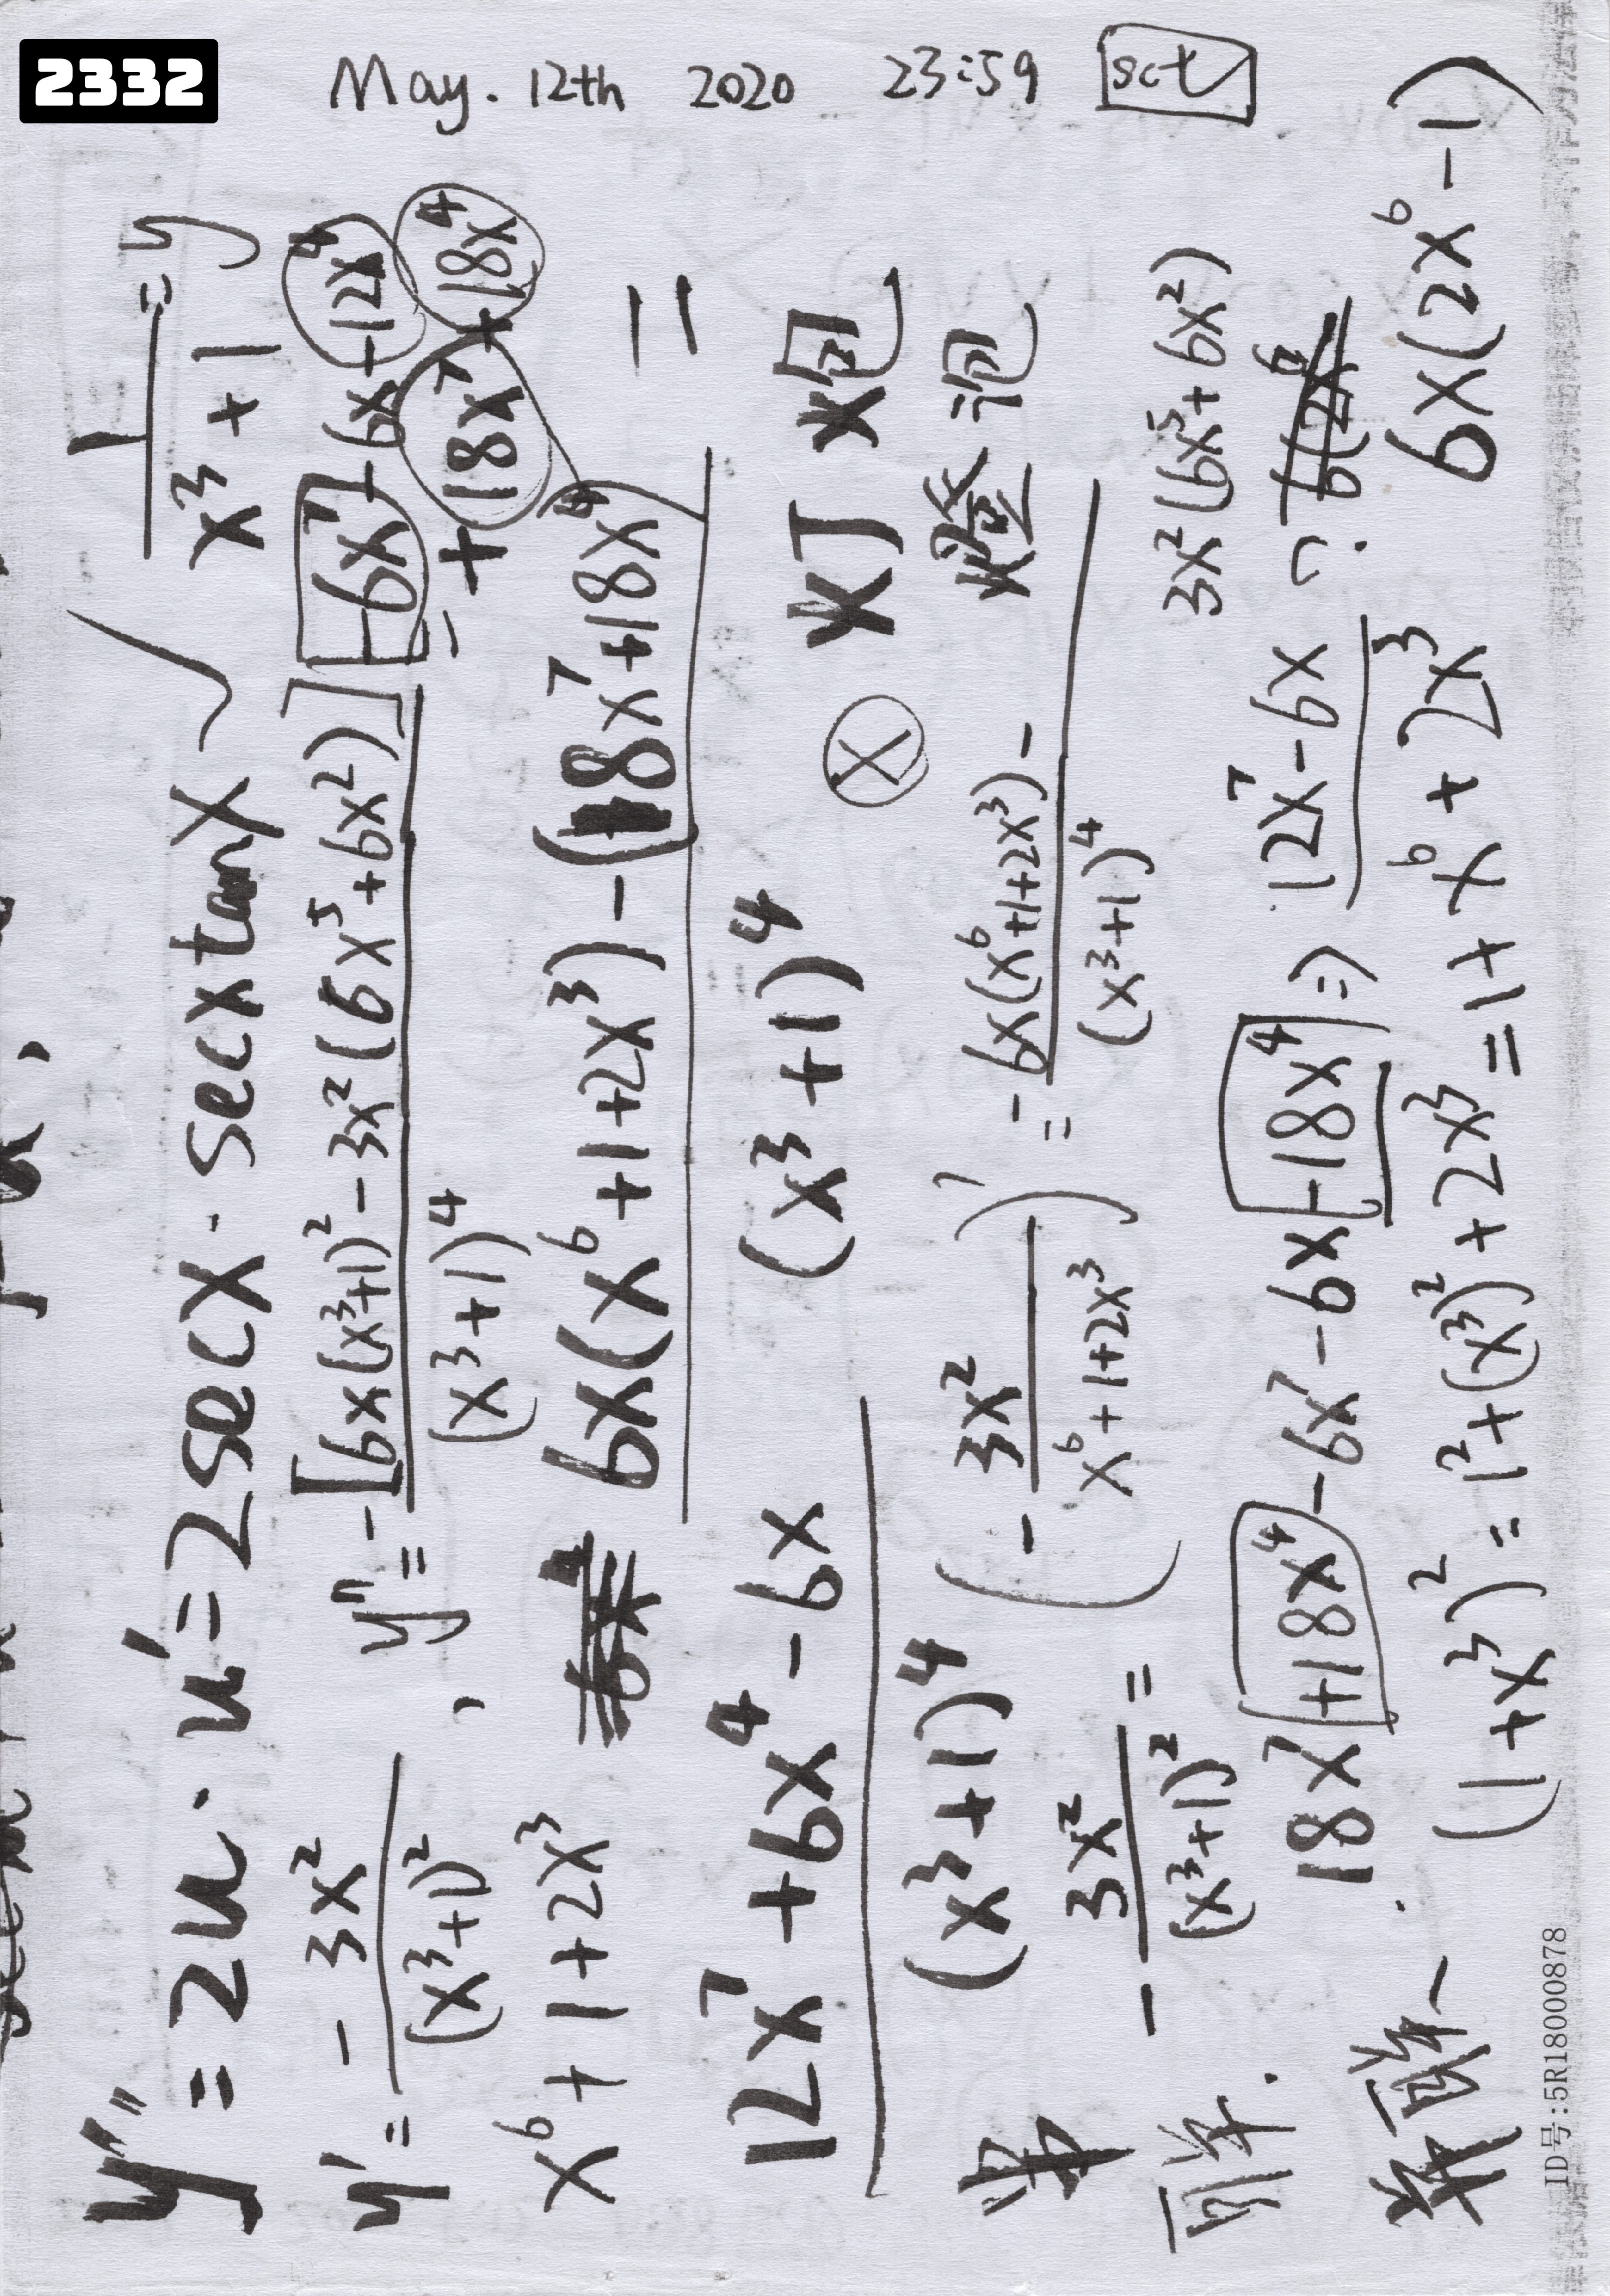 2332
May. 12th 2020 23:59 sct
y'' = 2u · u' = 2secx · secxtanx ✓ 1/(x³+1) = y
y' = - 3x²/(x³+1)² , y'' = -[6x(x³+1)² - 3x²(6x⁵+6x²)]/(x³+1)⁴ = -6x⁷-6x-12x⁴
+18x⁷+18x⁴
x⁶+1+2x³ 6x(x⁶+1+2x³)-(18x⁷+18x⁴)/(x³+1)⁴ =
12x⁷+6x⁴-6x/(x³+1)⁴ ⊗ 灯 炮
燈 泡
(- 3x²/(x⁶+1+2x³))' = -6x(x⁶+1+2x³)-/(x³+1)⁴
- 3x²/(x³+1)² = 3x²(6x⁵+6x²)
18x⁷+18x⁴-6x⁷-6x-18x⁴ => 12x⁷-6x
(1+x³)² = 1²+(x³)²+2x³ = 1+x⁶+2x³ 6x(2x⁶-1)
ID号:5R18000878